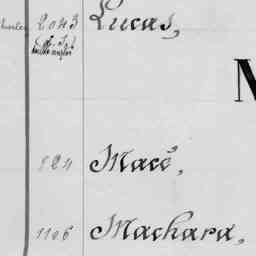 2043 Lucas,
M
124 Macé,
1106 Machara,